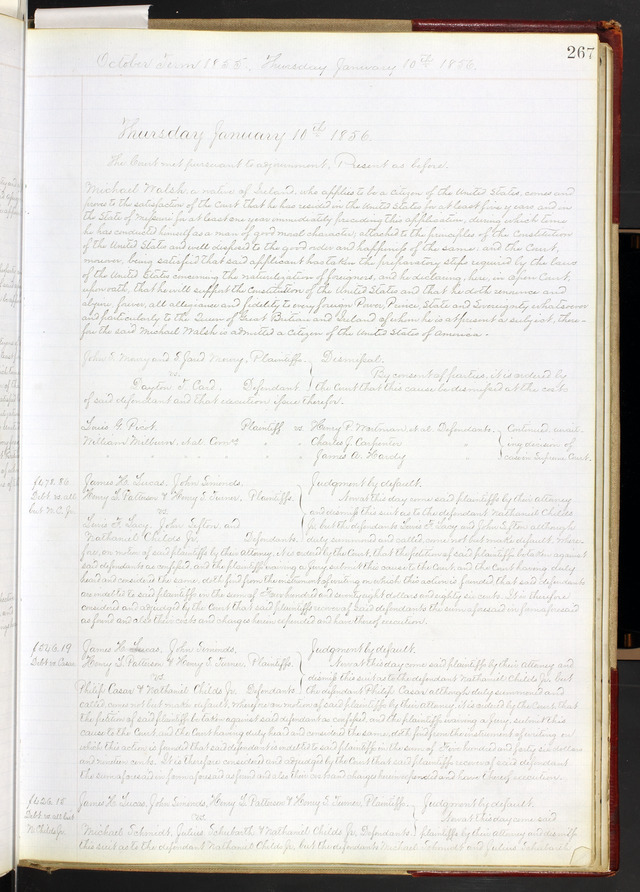 267
October Term 1855. Thursday January 10th 1856.
Thursday January 10th 1856.
The Court met pursuant to adjournment, Present as before.
Michael Walsh, a native of Ireland, who applies to be a citizen of the United States, comes and
proves to the satisfaction of the Court that he has resided in the United States for at least five years and in
the State of Missouri for at least one year immediately preceding this application, during which time
he has conducted himself as a man of good moral character, attached to the principles of the Constitution
of the United States and well disposed to the good order and happiness of the same. and the Court,
moreover, being satisfied that said applicant has taken the preparatory steps required by the laws
of the United States concerning the naturalization of foreigners, and he declaring, here, in open Court,
upon oath, that he will support the Constitution of the United States and that he doth renounce and
abjure forever, all allegiance and fidelity to every foreign Power, Prince, State and Sovereignty whatsoever
and particularly to the Queen of Great Britain and Ireland of whom he is at present a subject, there-
fore the said Michael Walsh is admitted a citizen of the United States of America.
John S. Merry and S. Jane Merry, Plaintiffs. Dismissal.
vs. By consent of parties, it is ordered by
Payton T. Card, Defendant the Court that this cause be dismissed at the costs
of said defendant and that execution issue therefor.
Louis G. Picot, Plaintiff vs. Henry P. Workman et al. Defendants. Continued await-
William Milburn, et al. Com'rs " " Charles J. Carpenter " ing decision of
" " " " " James A. Hardy " case in Supreme Court.
$678.86 James H. Lucas, John Simonds, Judgment by default.
Debt as all Henry L. Patterson & Henry S. Turner, Plaintiffs. Now at this day come said plaintiffs by their attorney
but N. C. Jr. vs. and dismiss this suit as to the defendant Nathaniel Childs
Louis F. Lucy, John Sefton, and Jr. but the defendants Louis F. Lucy and John Sefton although
Nathaniel Childs Jr. Defendants. duly summoned and called, come not but make default, where-
fore, on motion of said plaintiffs by their attorney, it is ordered by the Court, that the petition of said plaintiffs be taken against
said defendants as confessed. and the plaintiffs waiving a jury, submit this cause to the Court, and the Court having duly
heard and considered the same, doth find from the instrument of writing on which this action is founded, that said defendants
are indebted to said plaintiffs in the sum of Six hundred and seventy eight dollars and eighty six cents. It is therefore
considered and adjudged by the Court that said plaintiffs recover of said defendants the sum aforesaid in form aforesaid
as found and also their costs and charges herein expended and have thereof execution.
$546.19 James H. Lucas, John Simonds, Judgment by default.
Debt as Casar Henry L. Patterson & Henry S. Turner, Plaintiffs. Now at this day come said plaintiffs by their attorney and
vs. dismiss this suit as to the defendant Nathaniel Childs Jr. but
Philip Casar & Nathaniel Childs Jr. Defendants. the defendant Philip Casar although duly summoned and
called comes not but makes default, wherefore on motion of said plaintiffs by their attorney, it is ordered by the Court, that
the petition of said plaintiffs be taken against said defendant as confessed, and the plaintiffs waiving a jury, submit this
cause to the Court and the Court having duly heard and considered the same doth find from the instrument of writing on
which this action is founded that said defendant is indebted to said plaintiffs in the sum of Five hundred and forty six dollars
and nineteen cents. It is therefore considered and adjudged by the Court that said plaintiffs recover of said defendant
the sum aforesaid in form aforesaid as found and also their costs and charges herein expended and have thereof execution.
$626.18 James H. Lucas, John Simonds, Henry L. Patterson & Henry S. Turner, Plaintiffs. Judgment by default.
Debt as all but vs. Now at this day come said
N. Childs Jr. Michael Schmidt, Julius Schulath & Nathaniel Childs Jr. Defendants. plaintiffs by their attorney and dismiss
this suit as to the defendant Nathaniel Childs Jr. but the defendants Michael Schmidt and Julius Schulath